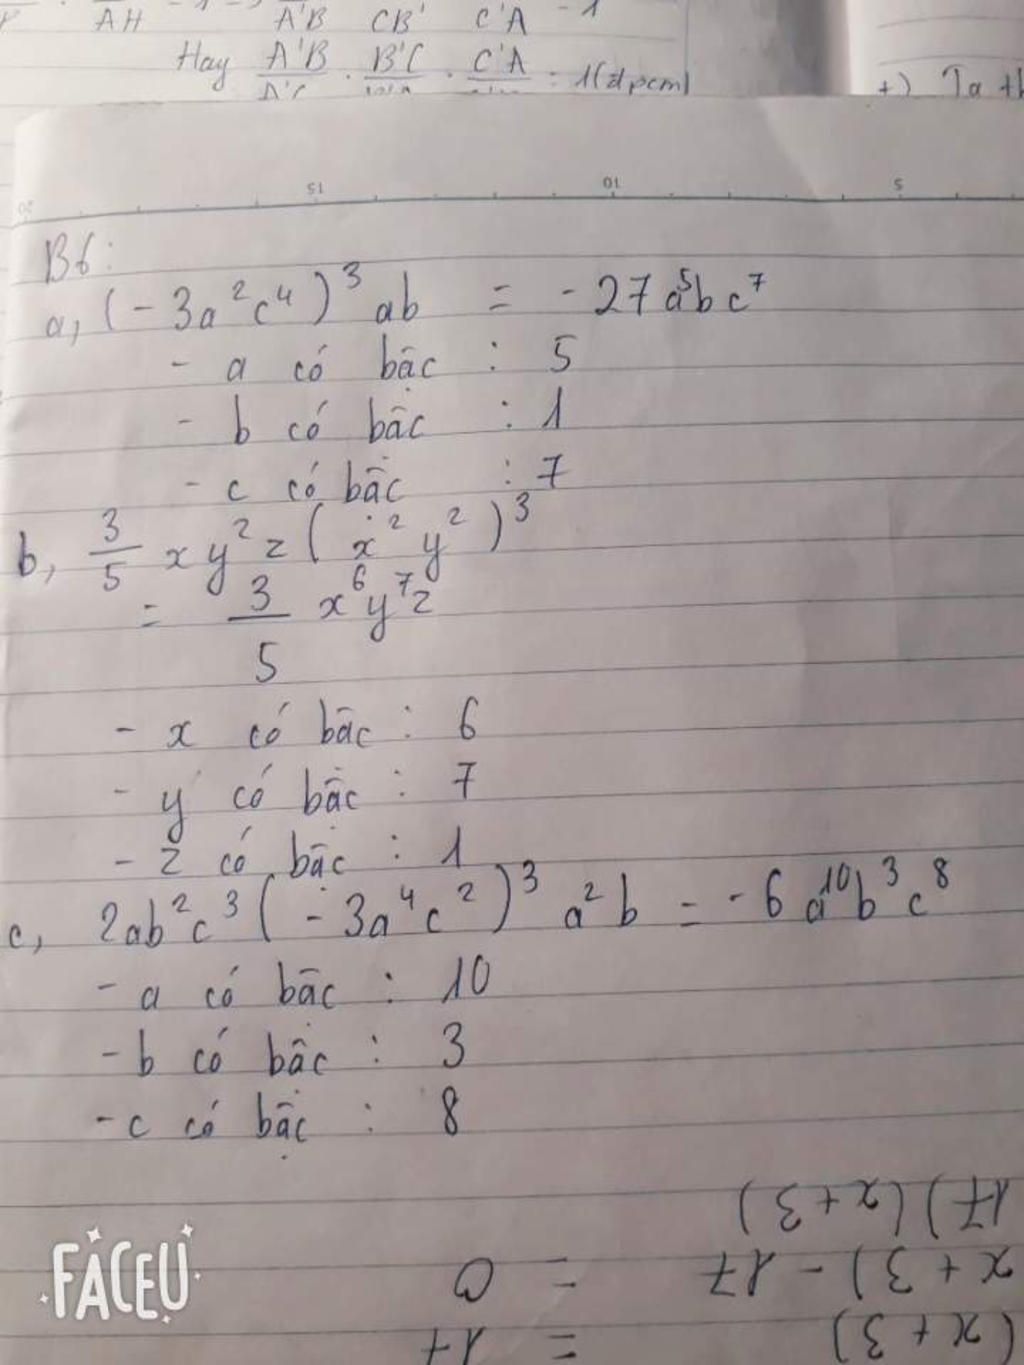 AH A'B CB' C'A 1
Hay A'B/A'C . B'C/ . C'A/ = 1(đpcm)
+) Ta th
20 15 10 5
B6:
a, (-3a²c⁴)³ab = -27a⁵bc⁷
- a có bậc : 5
- b có bậc : 1
- c có bậc : 7
b, 3/5 xy²z(x²y²)³
= 3/5 x⁶y⁷z
- x có bậc : 6
- y có bậc : 7
- z có bậc : 1
c, 2ab²c³(-3a⁴c²)³a²b = -6a¹⁰b³c⁸
- a có bậc : 10
- b có bậc : 3
- c có bậc : 8
17)(x+3)
x+3)-17 = 0
(x+3) = 17
FACEU